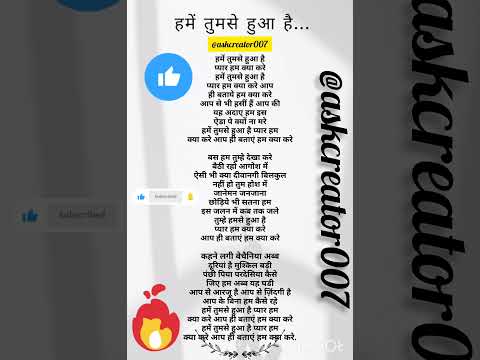 हमें तुमसे हुआ है...
@askcreator007
हमें तुमसे हुआ है
प्यार हम क्या करे
हमें तुमसे हुआ है
प्यार हम क्या करे आप
ही बताये हम क्या करे
आप से भी हसीं हैं आप की
यह अदाए हम इस
ऐडा पे क्यों ना मरे
हमें तुमसे हुआ है प्यार हम
क्या करे आप ही बताएं हम क्या करे
बस हम तुम्हे देखा करे
बैठी रहो आगोश में
ऐसी भी क्या दीवानगी बिलकुल
नहीं हो तुम होश में
जानेमन जनजाना
छोड़िये भी सतना हम
इस जलन में कब तक जले
तुम्हे हमसे हुआ है
प्यार हम क्या करे
आप ही बताएं हम क्या करे
कहने लगी बेचैनिया अब्ब
दूरियां है मुश्किल बडी
पंछी पिया परदेसिया कैसे
जिए हम अब्ब यह घडी
आप से आरज़ू है आप से ज़िंदगी है
आप के बिना हम कैसे रहे
हमें तुमसे हुआ है प्यार हम
क्या करे आप ही बताएं हम क्या करे
हमें तुमसे हुआ है प्यार हम
क्या करे आप ही बताएं हम क्या करे.
@askcreator007
Subscribed